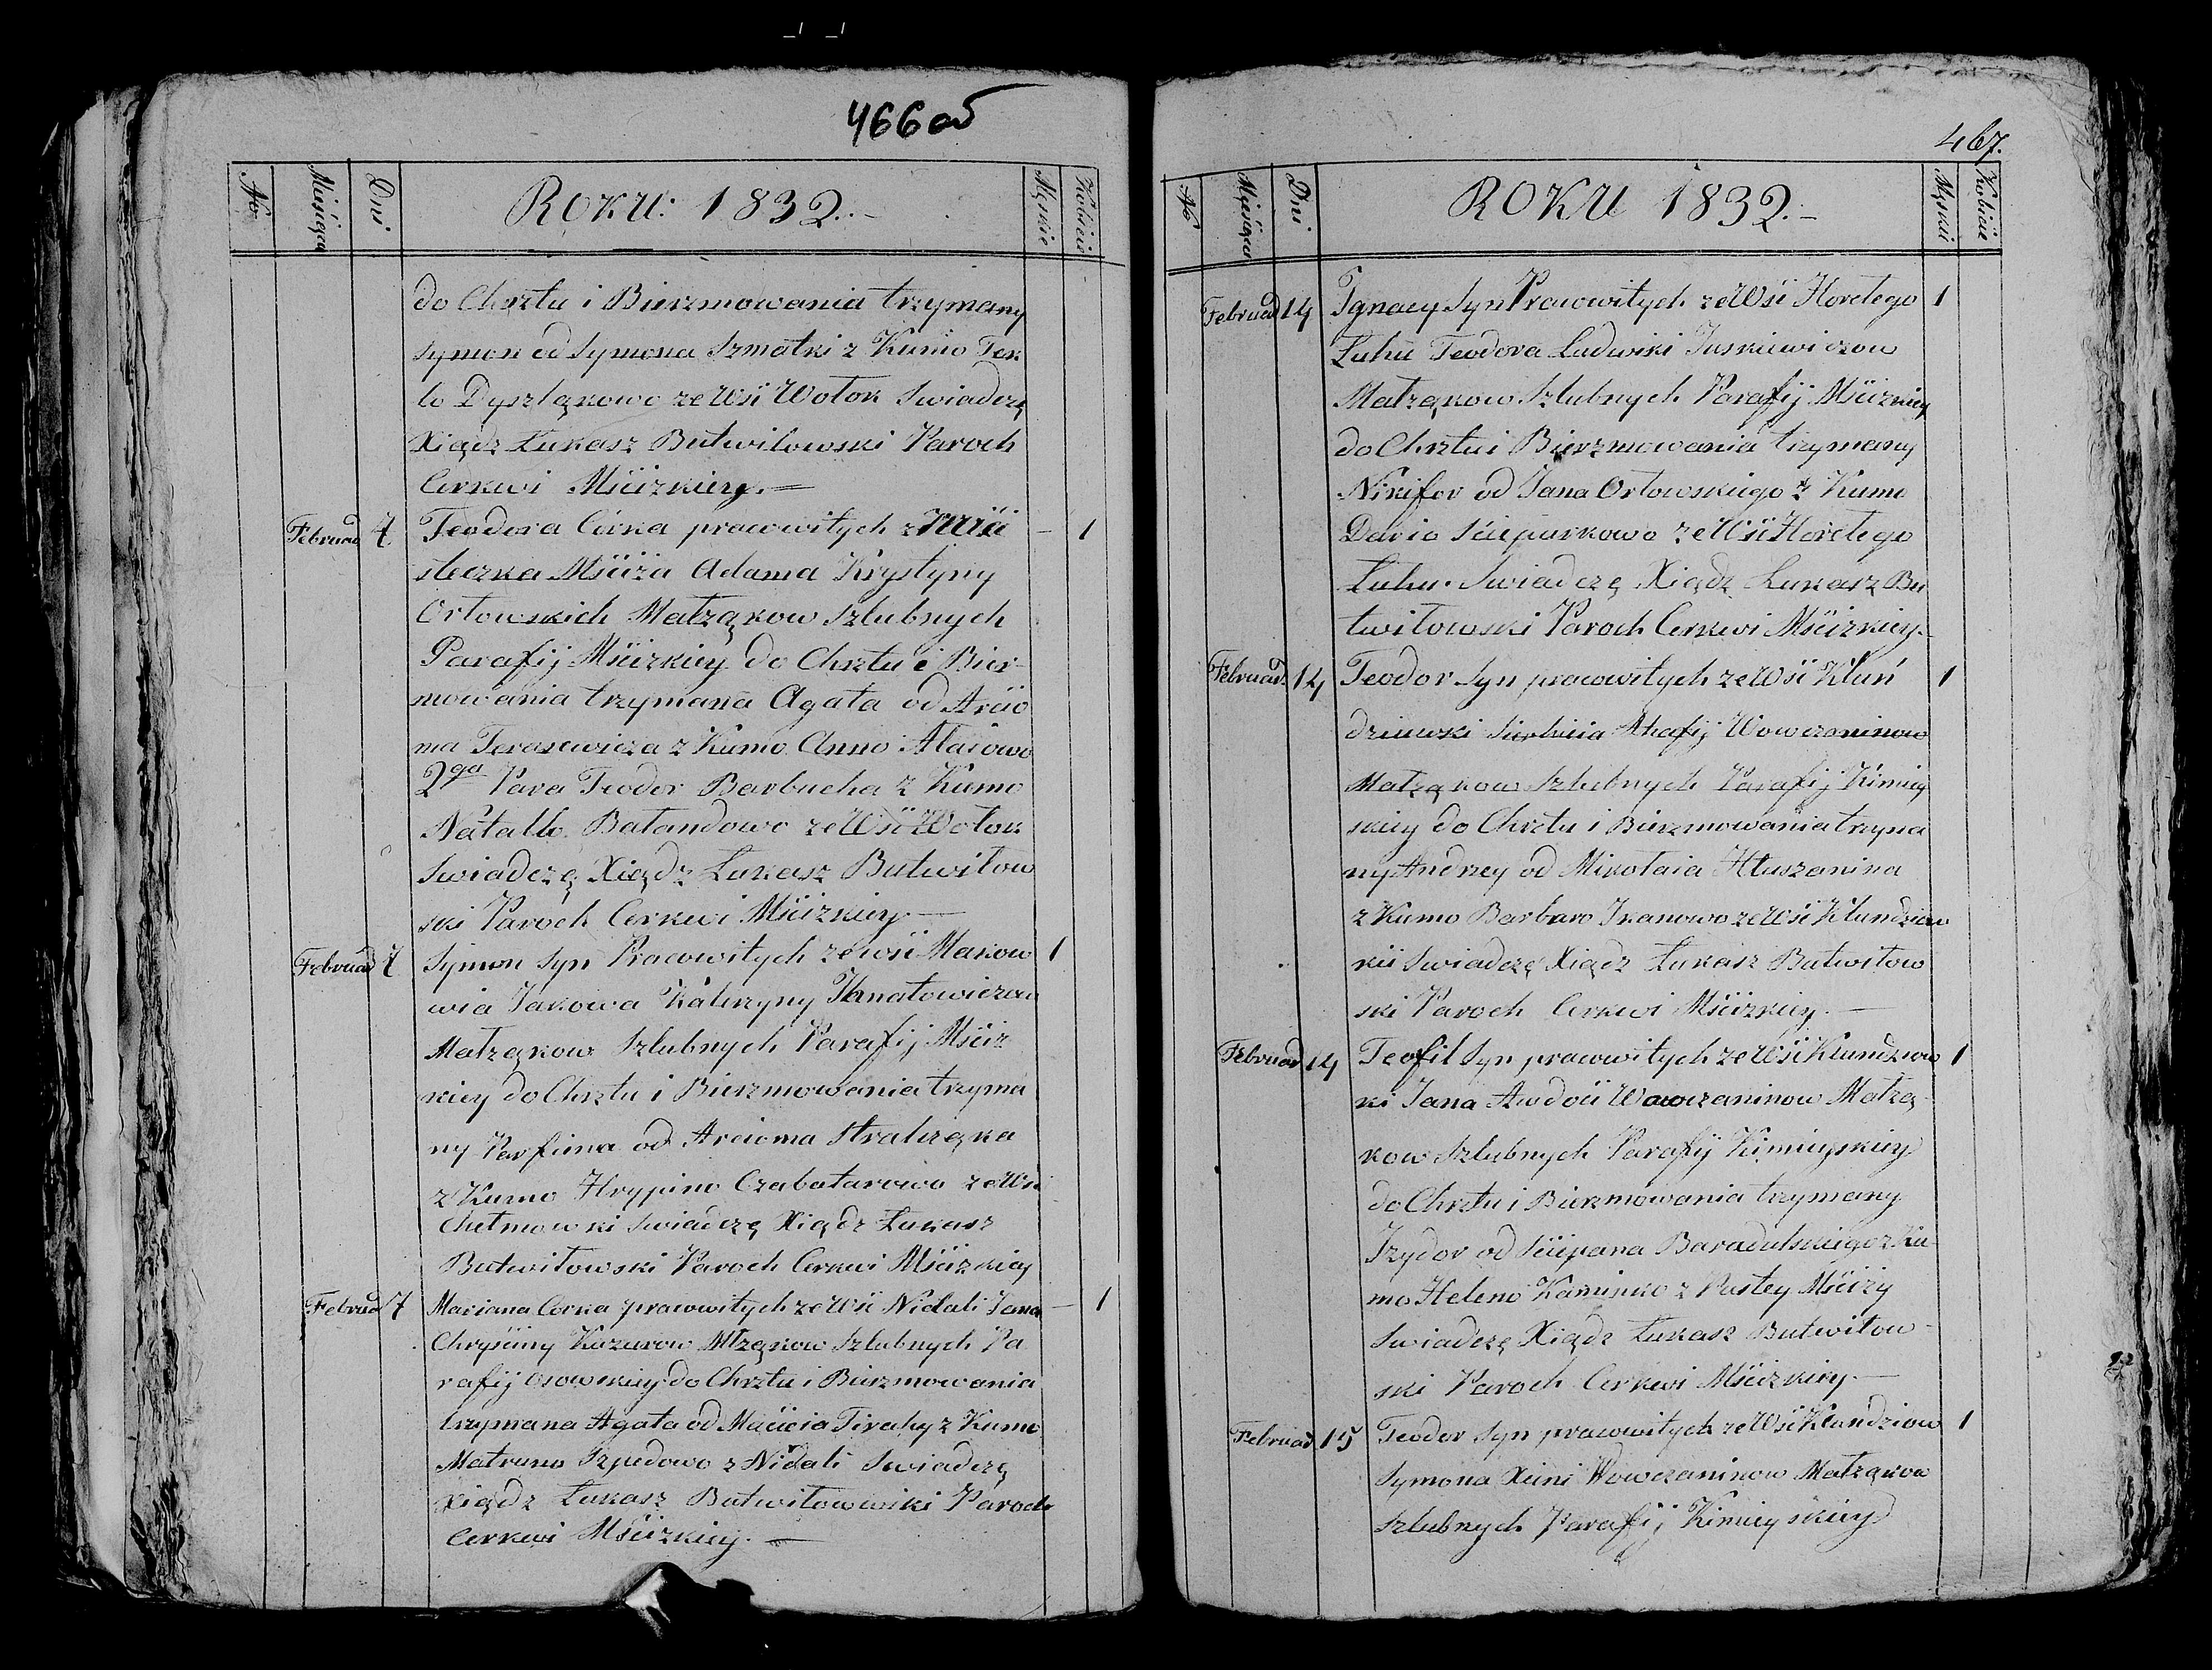 466 об
№
Miesiąca
Dni
ROKU: 1832.
Męskie
Kobiecie
do Chrztu i Bierzmowania trzymany
Symon od Symona Szmatki z Kumo Tek
lo Dyszląkowo ze Wsi Wołok Swiadczę
Xiądz Łukasz Butwiłowski Paroch
Cerkwi Mściżkiey.
Februar 7 Teodora Córka prawowitych z Mia — 1
steczka Mściża Adama Krystyny
Orłowskich Małżąkow Szlubnych
Parafij Mściżkiey do Chrztu i Bier-
mowania trzymana Agata od Arcio
ma Terasewicza z Kumo Anno Ałaiowo
2ga Para Teodor Barbucha z Kumo
Natallo Bałandowo ze Wsi Wołok
Swiadczę Xiądz Łukasz Butwiłow
ski Paroch Cerkwi Mściżkiey
Februar 7 Symon Syn Prawowitych ze wsi Makow 1
wia Jakowa Katrzyny Ihnatowiczow
Małżąkow Szlubnych Parafij Mściż
kiey do Chrztu i Bierzmowania trzyma
ny Parfima od Arcioma
z Kumo Hrypino Czabatarowo ze Wsi
Chełmowki Swiadczę Xiądz Łukasz
Butwiłowski Paroch Cerkwi Mściżkiey
Februar 7 Mariana Corka prawowitych ze Wsi Nidali Jana — 1
Chryściny Kazurow Młżąkow Szlubnych Pa
rafij Osowskiey do Chrztu i Bierzmowania
trzymana Agata od Macieia Tirahy z Kumo
Matruno Szpedowo z Nidali Swiadczę
Xiądz Łukasz Butwiłowski Paroch
Cerkwi Mściżkiey.
467.
№
Miesiąca
Dni
ROKU 1832.
Męskie
Kobiecie
Februar 14 Ignacy Syn Prawowitych ze Wsi Horełego 1
Łuhu Teodora Ludwiki Juskiewiczow
Małżąkow Szlubnych Parafij Mściżkiey
do Chrztu i Bierzmowania trzymany
Nikifor od Jana Orłowskiego z Kumo
Dario Sciepurkowo ze Wsi Horełego
Łuhu. Swiadczę Xiądz Łukasz Bu
twiłowski Paroch Cerkwi Mściżkiey.
Februar 14 Teodor Syn prawowitych ze Wsi Kłuń 1
dziewki Ahafij Wowczaninow
Małżąkow Szlubnych Parafij Kimiey
skiey do Chrztu i Bierzmowania trzyma
ny Andrey od Mikołaia Hłuszanina
z Kumo Barbaro Iwanowo ze Wsi Kłundziew
kii Swiadczę Xiądz Łukasz Butwiłow
ski Paroch Cerkwi Mściżkiey.
Februar 14 Teofil Syn prawowitych ze Wsi Kłundziow 1
ki Jana Awdoci Wowczaninow Małżą
kow Szlubnych Parafij Kimieyskiey
do Chrztu i Bierzmowania trzymany
Izydor od Sciepana Baradulskiego z Ku
mo Heleno Kaminko z Pustey Mściży
Swiadczę Xiądz Łukasz Butwiłow-
ski Paroch Cerkwi Mściżkiey.
Februar 15 Teodor Syn prawowitych ze Wsi Kłundziow 1
Symona Xieni Wowczaninow Małżąkow
Szlubnych Parafij Kimieyskiey